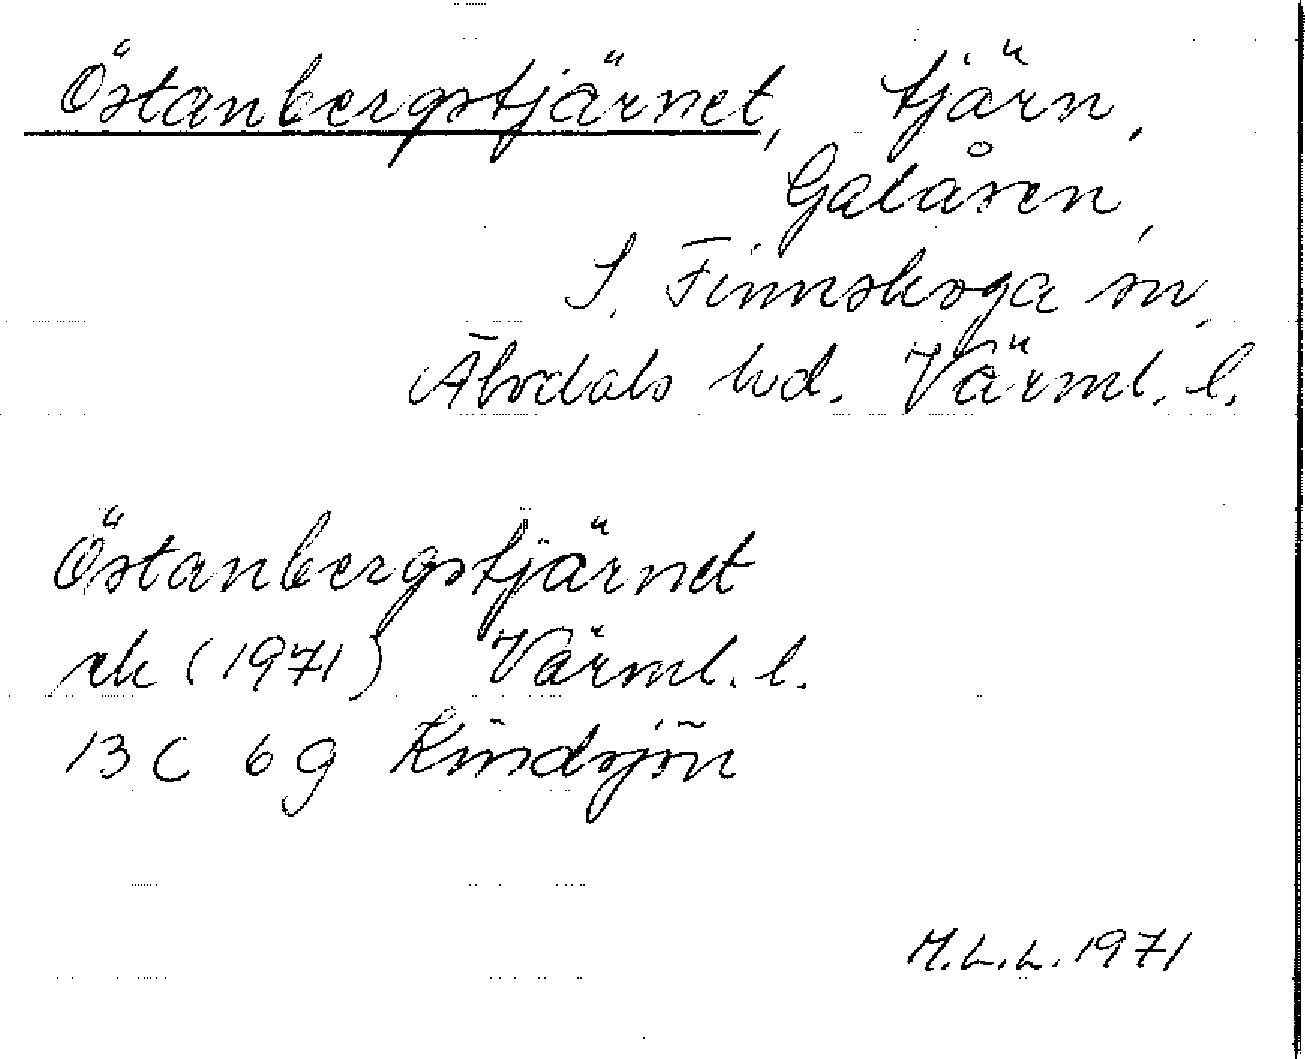 Östanbergstjärnet, tjärn,
Galåsen,
S. Finnskoga sn,
Älvdals hd. Värml. l.
Östanbergstjärnet
rk (1971) Värml. l.
13 C 6 g Kindsjön
M.L.L. 1971